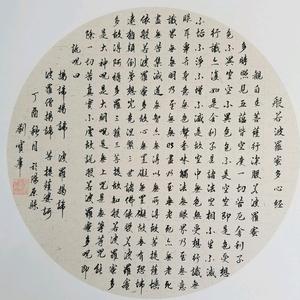 般若波羅蜜多心經
觀自在菩薩行深般若波羅蜜
多時照見五蘊皆空度一切苦厄舍利子
色不異空空不異色色即是空空即是色受想
行識亦復如是舍利子是諸法空相不生不滅
不垢不淨不增不減是故空中無色無受想行識無
眼耳鼻舌身意無色聲香味觸法無眼界乃至無意
識界無無明亦無無明盡乃至無老死亦無老死
盡無苦集滅道無智亦無得以無所得故菩提薩埵
依般若波羅蜜多故心無罣礙無罣礙故無有恐怖
遠離顛倒夢想究竟涅槃三世諸佛依般若波羅蜜
多故得阿耨多羅三藐三菩提故知般若波羅蜜
多是大神咒是大明咒是無上咒是無等等咒能
除一切苦真實不虛故說般若波羅蜜多咒即
說咒曰
揭諦揭諦 波羅揭諦
波羅僧揭諦 菩提薩婆訶
丁酉秋月
劉